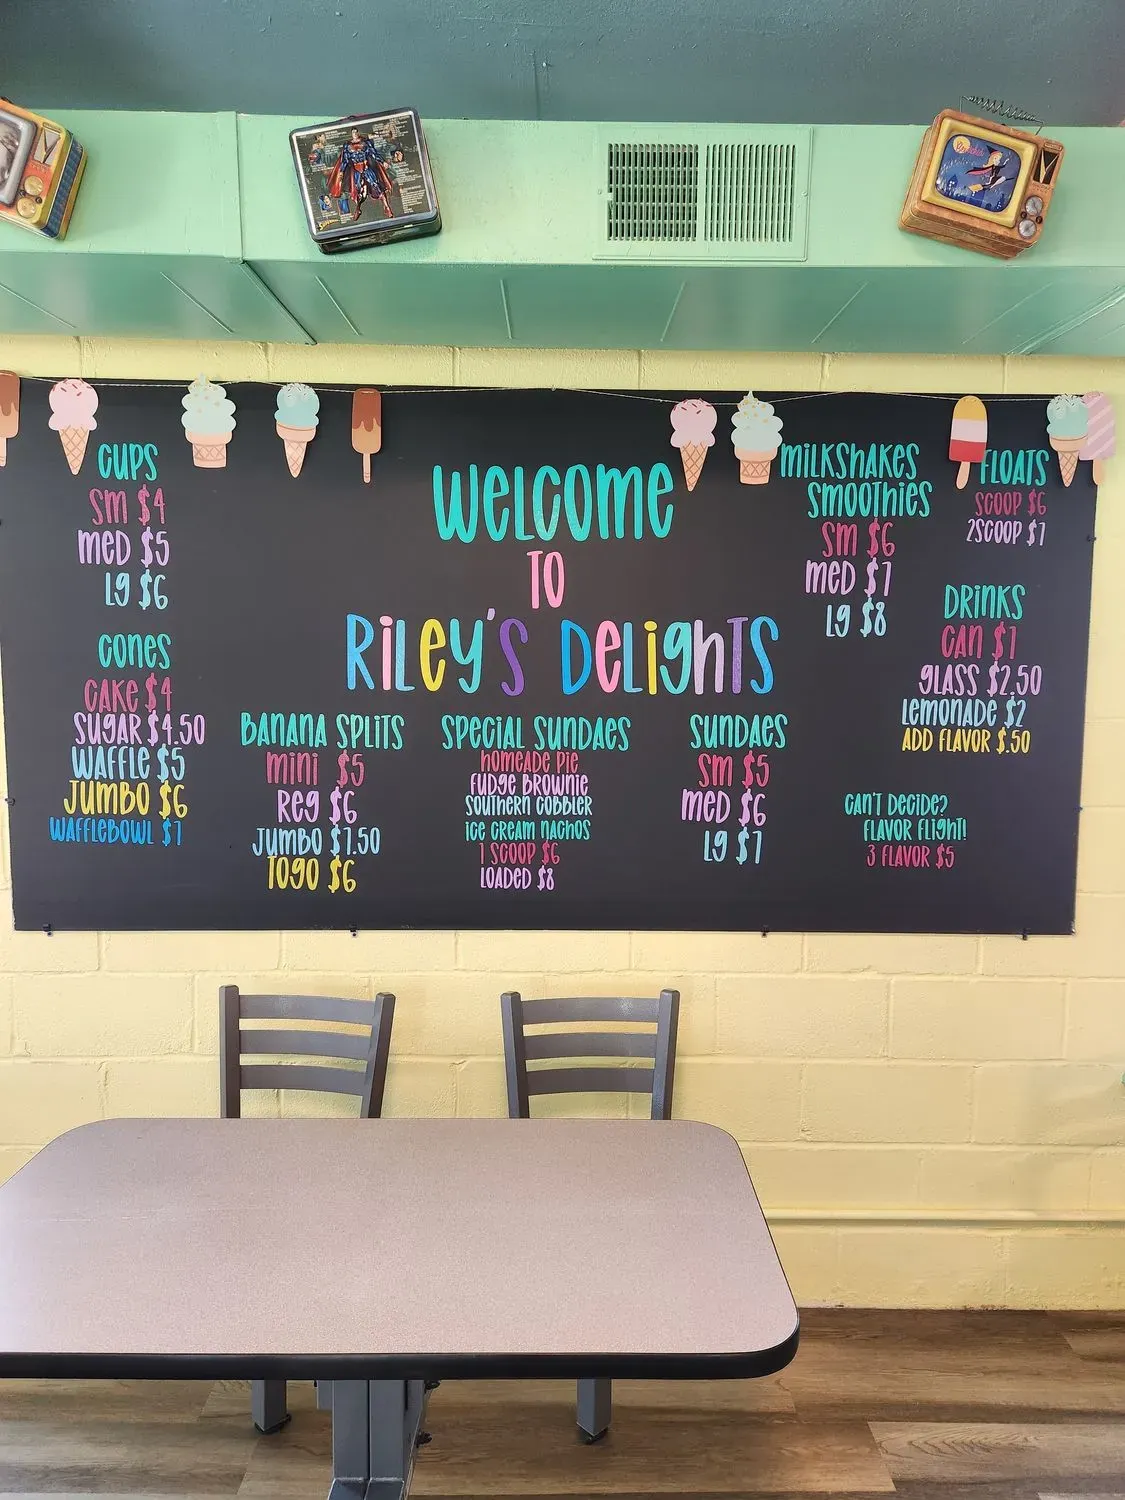 CUPS
SM $4
MED $5
LG $6
CONES
CAKE $4
SUGAR $4.50
WAFFLE $5
JUMBO $6
WAFFLEBOWL $7
WELCOME
TO
RILEY'S DELIGHTS
BANANA SPLITS
MINI $5
REG $6
JUMBO $7.50
TOGO $6
SPECIAL SUNDAES
HOMEADE PIE
FUDGE BROWNIE
SOUTHERN COBBLER
ICE CREAM NACHOS
1 SCOOP $6
LOADED $8
SUNDAES
SM $5
MED $6
LG $7
MILKSHAKES
SMOOTHIES
SM $6
MED $7
LG $8
FLOATS
SCOOP $6
2SCOOP $7
DRINKS
CAN $1
GLASS $2.50
LEMONADE $2
ADD FLAVOR $.50
CAN'T DECIDE?
FLAVOR FLIGHT!
3 FLAVOR $5